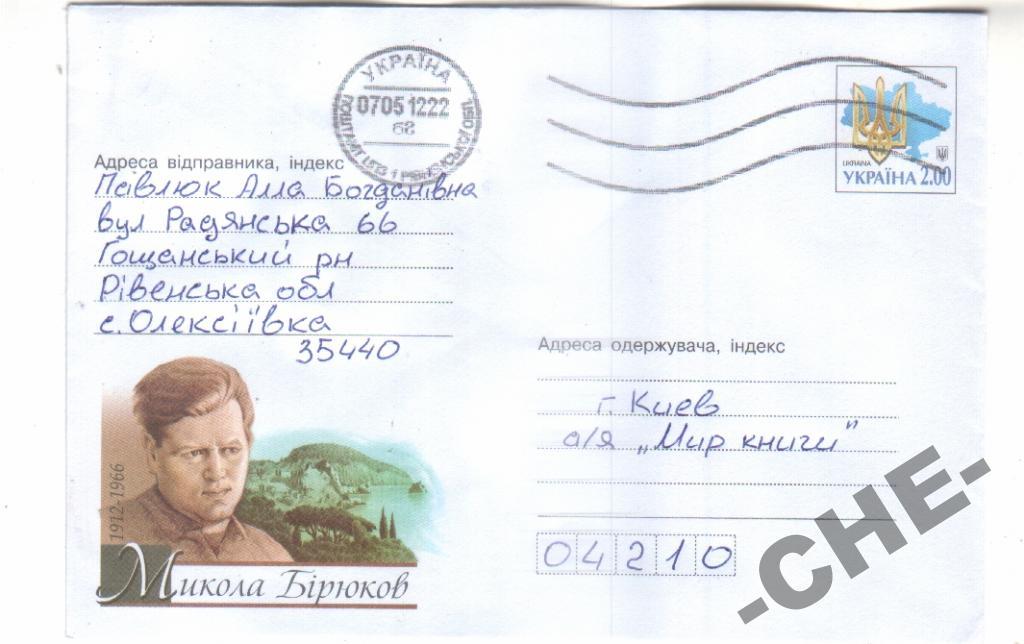 УКРАЇНА
07051222
68
UKRAINA
УКРАЇНА 2.00
Адреса відправника, індекс
Павлюк Алла Богданівна
вул Радянська 66
Гощанський рн
Рівенська обл
с. Олексіївка
35440
Адреса одержувача, індекс
г. Киев
а/я „Мир книги"
04210
1912-1966
Микола Бірюков
-CHE-